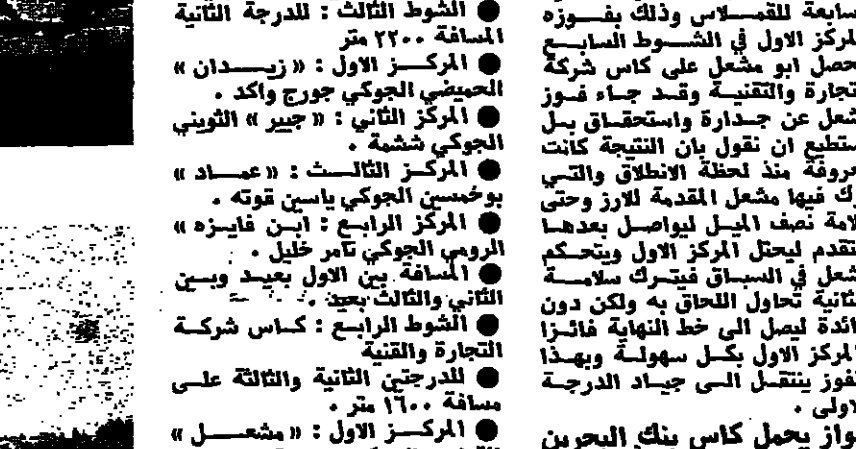 سابعة للقمـــلاس وذلك بفـــوزه
لمركز الاول في الشـــوط السابـــع
حصل ابو مشعل على كاس شركة
تجارة والتقنيـــة وقـــد جـــاء فـــوز
شعل عن جـــدارة واستحقـــاق بـــل
ستطيع ان نقول بان النتيجة كانت
عروفة منذ لحظة الانطلاق والتـــي
رك فيها مشعل المقدمة للارز وحتى
لامة نصف الميـــل ليواصـــل بعدهـــا
تقدم ليحتل المركز الاول ويتحـــكم
شعل في السبـــاق فيتـــرك سلامـــة
ثانية تحاول اللحاق به ولكن دون
ائدة ليصل الى خط النهاية فائـــزا
لمركز الاول بكـــل سهولـــة وبهـــذا
فوز ينتقـــل الـــى جيـــاد الدرجـــة
لاولى .
واز يحمل كاس بنك البحرين
● الشوط الثالث : للدرجة الثانية
المسافة ٢٢٠٠ متر
● المركـــز الاول : « زيـــدان »
الحميضي الجوكي جورج واكد .
● المركز الثاني : « جيبر » الثويني
الجوكي ششمة .
● المركـــز الثالـــث : « عمـــاد »
بوخمسين الجوكي ياسين قوته .
● المركز الرابـــع : ابـــن فايـــزه »
الرومي الجوكي تامر خليل .
● المسافة بين الاول بعيـــد وبـــين
الثاني والثالث بعيد .
● الشوط الرابـــع : كـــاس شركـــة
التجارة والقنية
● للدرجتين الثانية والثالثة علـــى
مسافة ١٦٠٠ متر .
● المركـــز الاول : « مشعـــل »